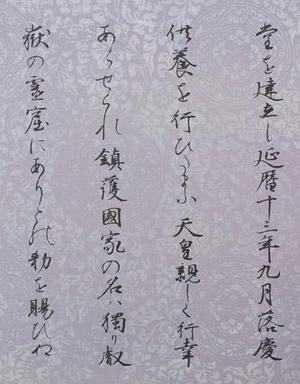 堂を建立し延暦十三年九月落慶
供養を行ひたまふ天皇親しく行幸
あらせられ鎮護國家の名は獨り叡
嶽の霊窟にありとの勅を賜ひぬ